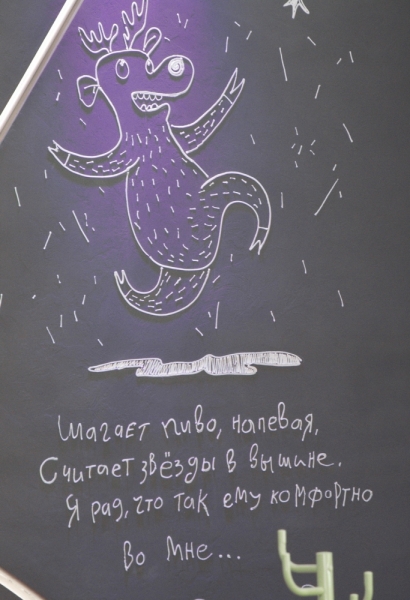 Шагает пиво, напевая,
Считает звёзды в вышине.
Я рад, что так ему комфортно
во мне...